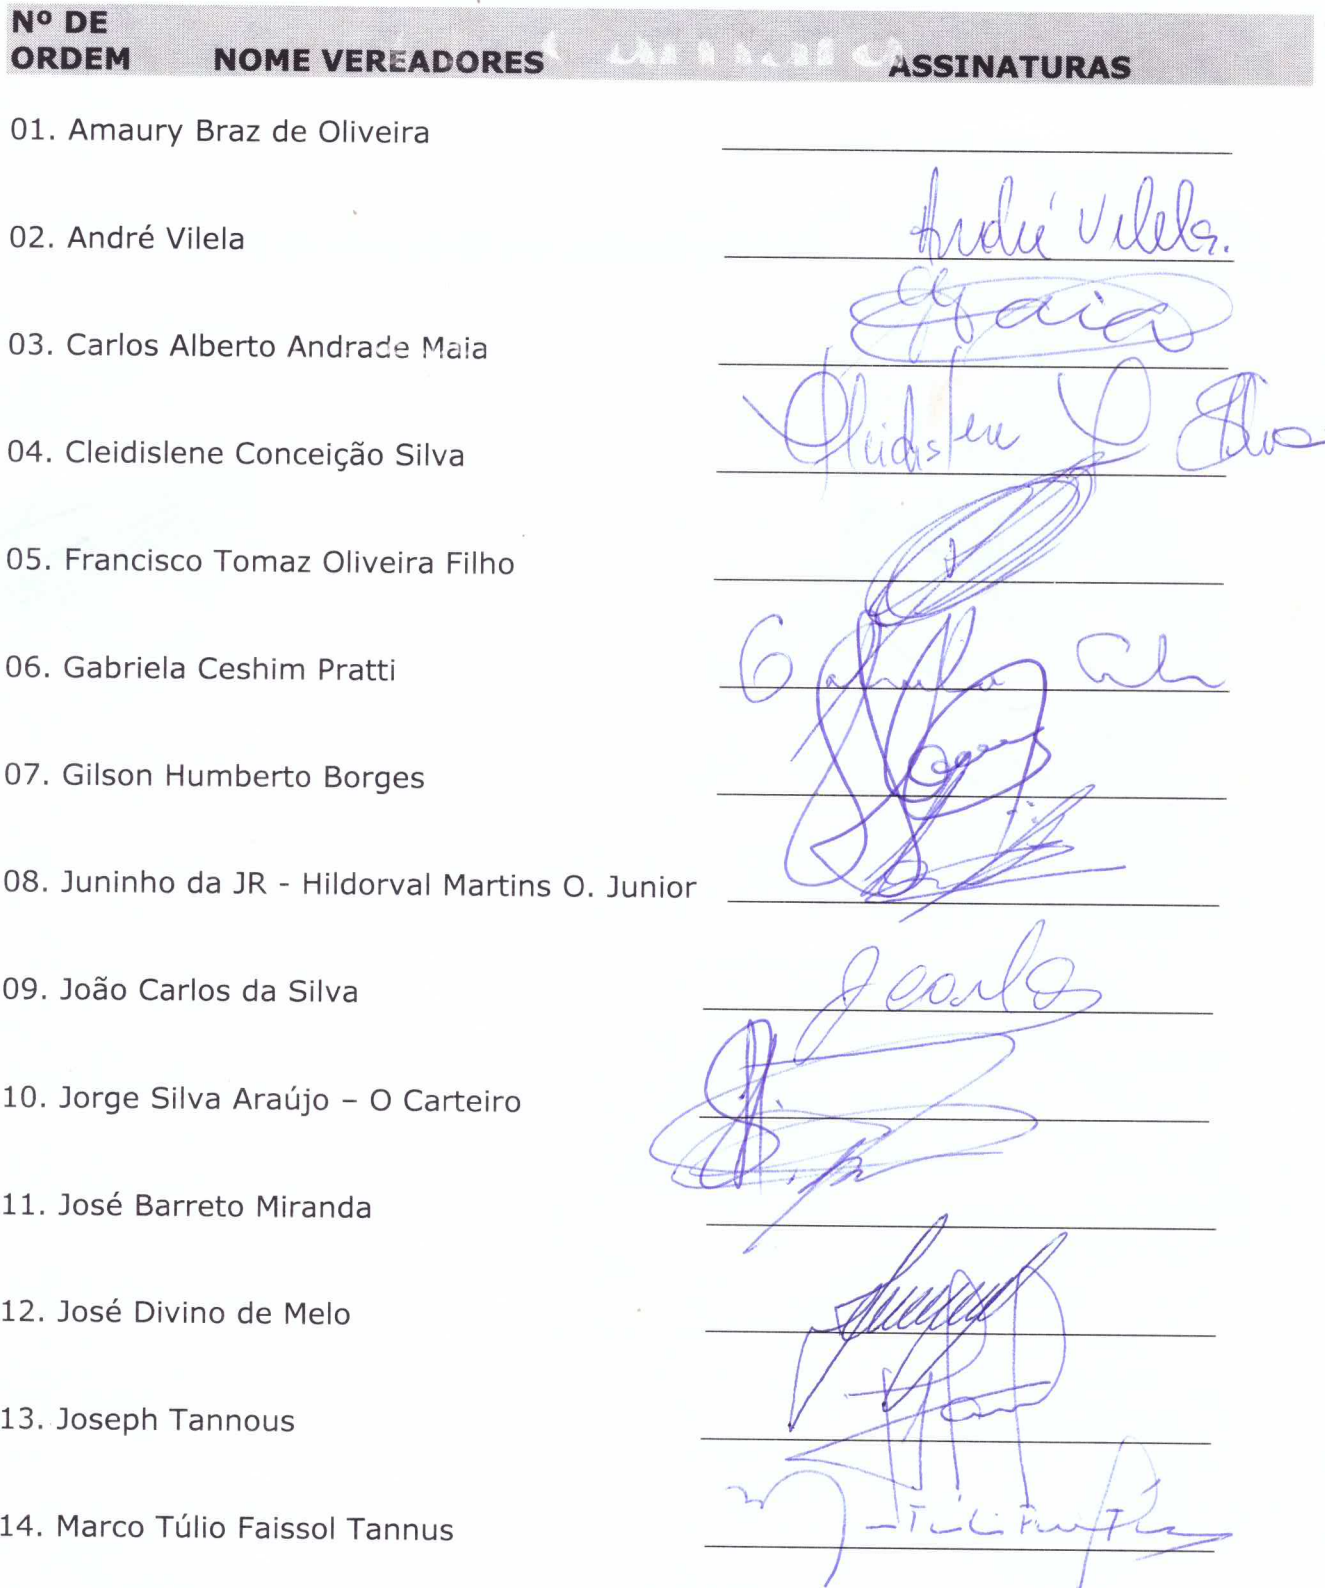 Nº DE
ORDEM NOME VEREADORES ASSINATURAS
01. Amaury Braz de Oliveira
02. André Vilela André Vilela.
03. Carlos Alberto Andrade Maia Maia
04. Cleidislene Conceição Silva Cleidislene C Silva
05. Francisco Tomaz Oliveira Filho
06. Gabriela Ceshim Pratti
07. Gilson Humberto Borges
08. Juninho da JR - Hildorval Martins O. Junior
09. João Carlos da Silva J Carlos
10. Jorge Silva Araújo – O Carteiro
11. José Barreto Miranda
12. José Divino de Melo
13. Joseph Tannous
14. Marco Túlio Faissol Tannus